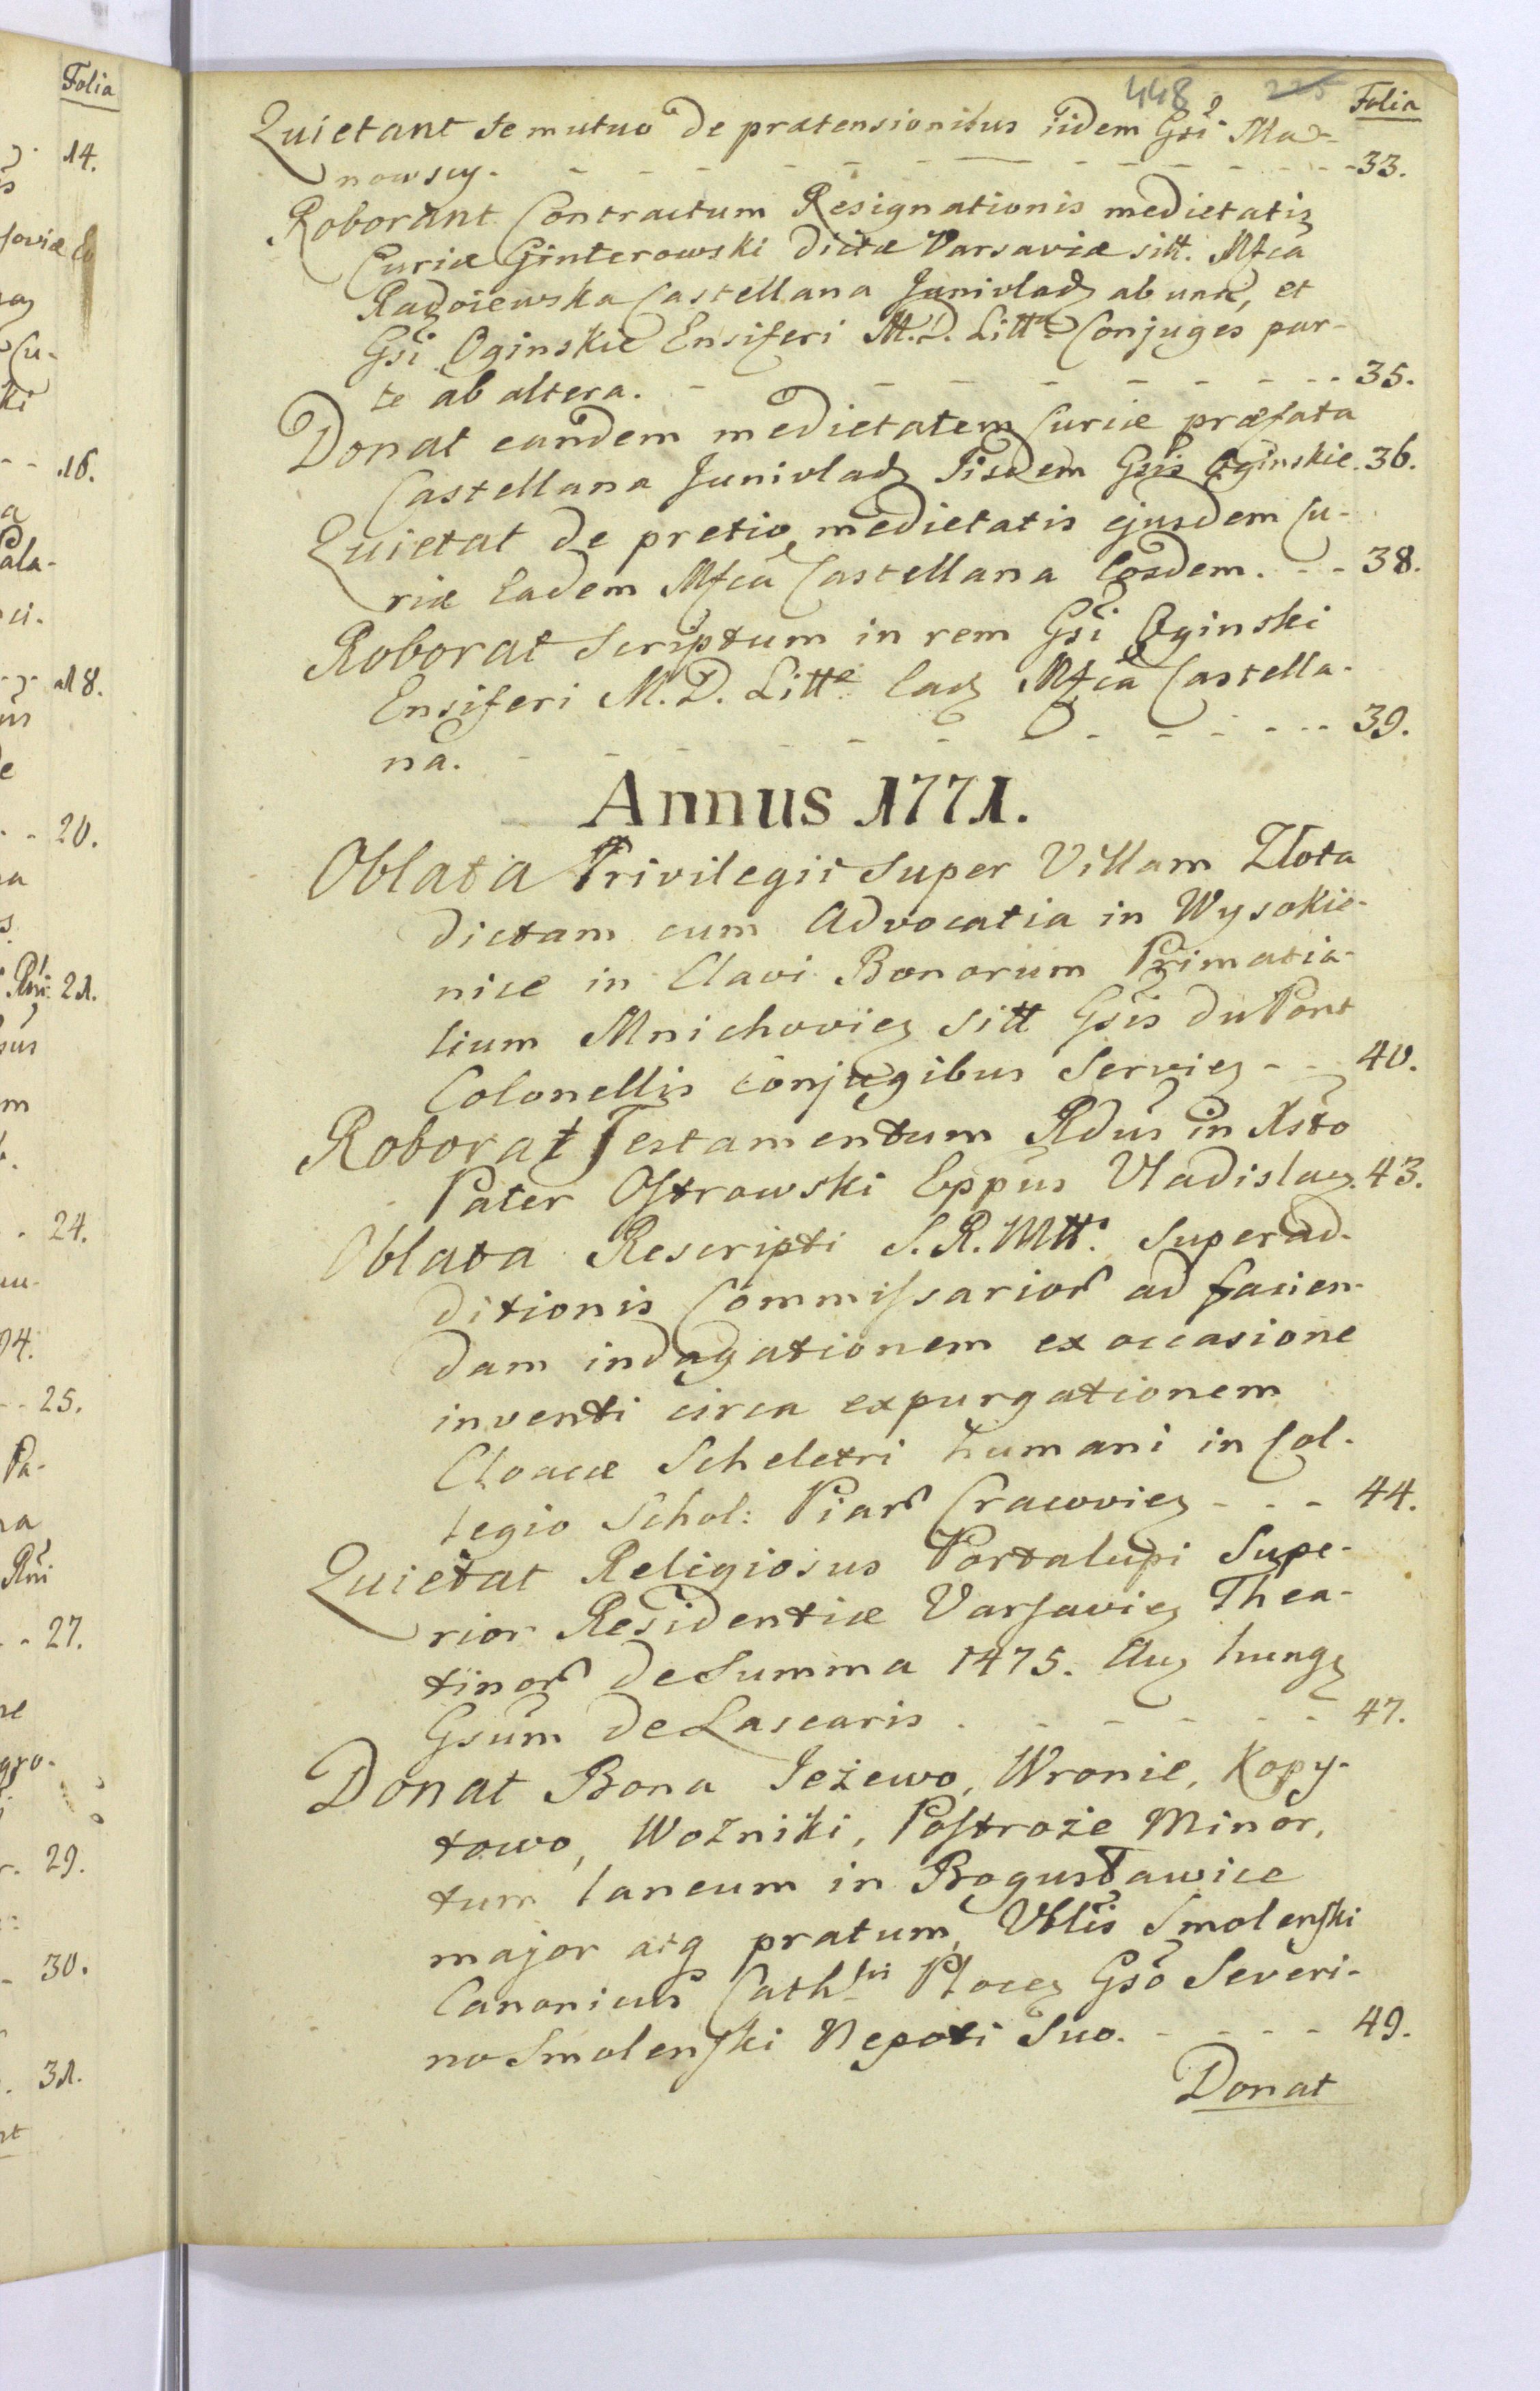 Folia
14.
16.
18.
20.
21.
24.
25.
27.
29.
30.
31.
448 225 Folia
Quietant se mutuo de prætensionibus iidem Gsi Ma-
nowscy. - - - - - - - - 33.
Roborant Contractum Resignationis medietatis
Curiæ Ginterowski dictæ Varsaviæ sitt. Mfca
Radzoiewska Castellana Junivlad ab una, et
Gsi Oginskie Ensiferi M.D. Littæ Conjuges par-
te ab altera. - - - - - - - - 35.
Donat eandem medietatem Curiæ præfata
Castellana Junivlad Iisdem Gsis Oginskie. 36.
Quietat de pretio medietatis ejusdem Cu-
riæ Eadem Mfca Castellana Eosdem. - - 38.
Roborat Scriptum in rem Gsi Oginski
Ensiferi M.D. Littæ Ead Mfca Castella-
na. - - - - - - - - - 39.
Annus 1771.
Oblata Privilegii Super Villam Złota
dictam cum Advocatia in Wysokie-
nice in Clavi Bonorum Primatia-
lium Mnichovien sitt Gsis du Pont
Colonellis conjugibus Servien - - 40.
Roborat Testamentum Rdus in Xsto
Pater Ostrowski Eppus Vladislav. 43.
Oblata Rescripti S.R.Mtt. Superad-
ditionis Commissarior ad facien-
dam indagationem ex occasione
inventi circa expurgationem
Cloacæ Scheletri humani in Col-
legio Schol: Piar Cracovien - - - 44.
Quietat Religiosus Portalupi Supe-
rior Residentiæ Varsavien Thea-
tinor de Summa 1475. Aur hung
Gsum de Lascaris . - - - - - 47.
Donat Bona Jeżewo, Wronie, Kopy-
towo, Wozniki, Postroże Minor,
tum laneum in Bogusławice
major atq pratum, Vblis Smolenski
Canonicus Cathlis Plocen Gso Severi-
no Smolenski Nepoti Suo. - - - - 49.
Donat